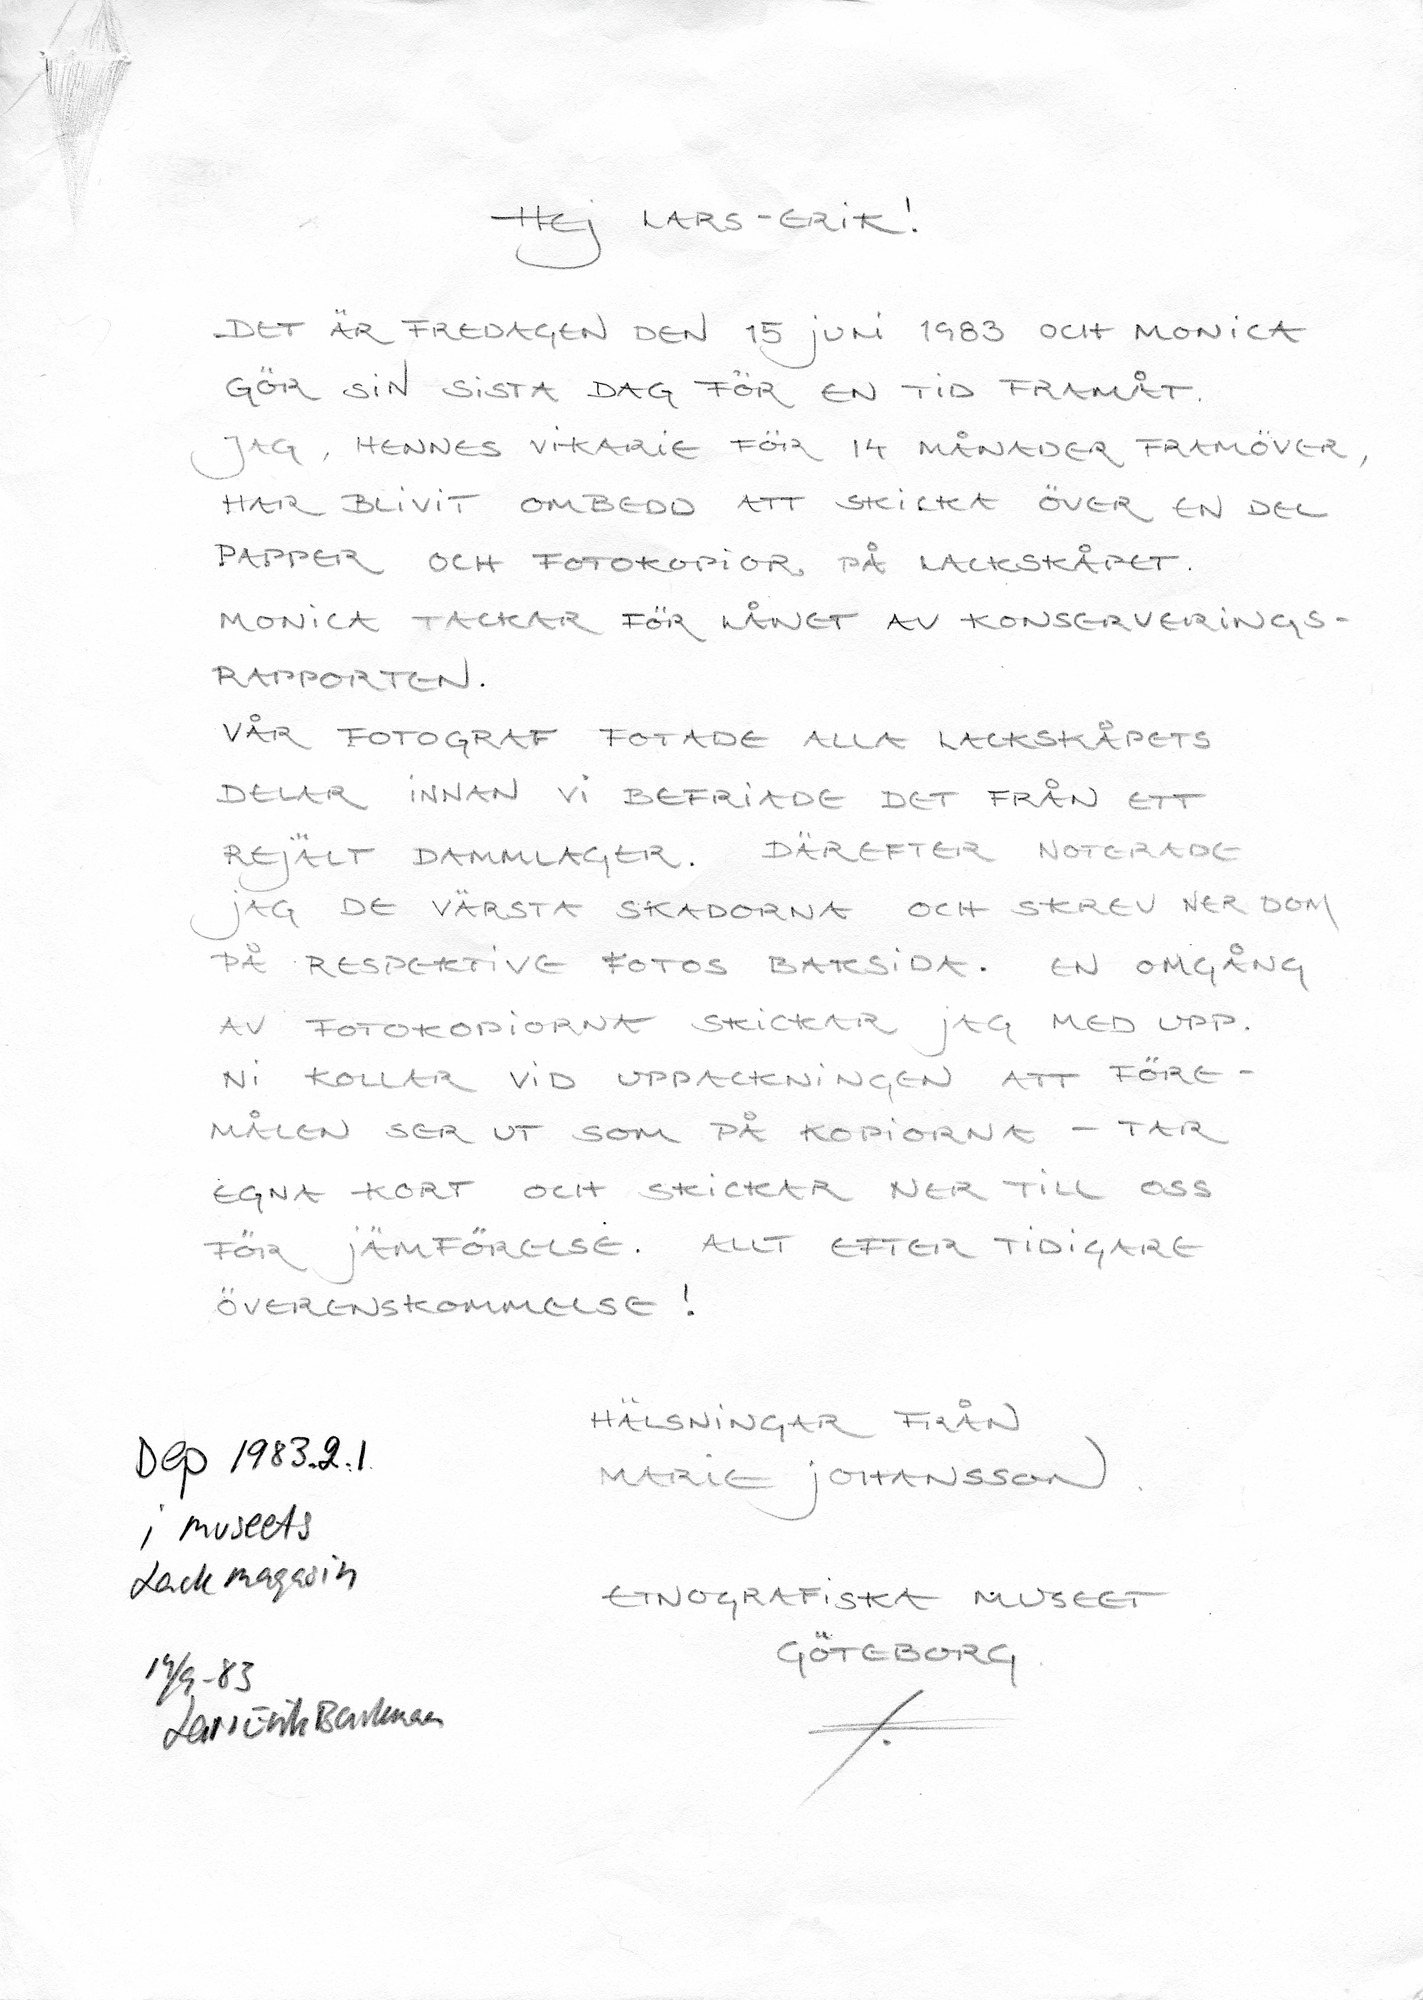 Hej LARS-ERIK!
DET ÄR FREDAGEN DEN 15 juni 1983 OCH MONICA
GÖR SIN SISTA DAG FÖR EN TID FRAMÅT.
JAG, HENNES VIKARIE FÖR 14 MÅNADER FRAMÖVER,
HAR BLIVIT OMBEDD ATT SKICKA ÖVER EN DEL
PAPPER OCH FOTOKOPIOR PÅ LACKSKÅPET.
MONICA TACKAR FÖR LÅNET AV KONSERVERINGS-
RAPPORTEN.
VÅR FOTOGRAF FOTADE ALLA LACKSKÅPETS
DELAR INNAN VI BEFRIADE DET FRÅN ETT
REJÄLT DAMMLAGER. DÄREFTER NOTERADE
JAG DE VÄRSTA SKADORNA OCH SKREV NER DOM
PÅ RESPEKTIVE FOTOS BAKSIDA. EN OMGÅNG
AV FOTOKOPIORNA SKICKAR JAG MED UPP.
NI KOLLAR VID UPPACKNINGEN ATT FÖRE-
MÅLEN SER UT SOM PÅ KOPIORNA - TAR
EGNA KORT OCH SKICKAR NER TILL OSS
FÖR JÄMFÖRELSE. ALLT EFTER TIDIGARE
ÖVERENSKOMMELSE!
HÄLSNINGAR FRÅN
MARIE JOHANSSON.
ETNOGRAFISKA MUSEET
GÖTEBORG.
Dep 1983.2.1.
i museets
Lackmagasin
-83
Lars Erik